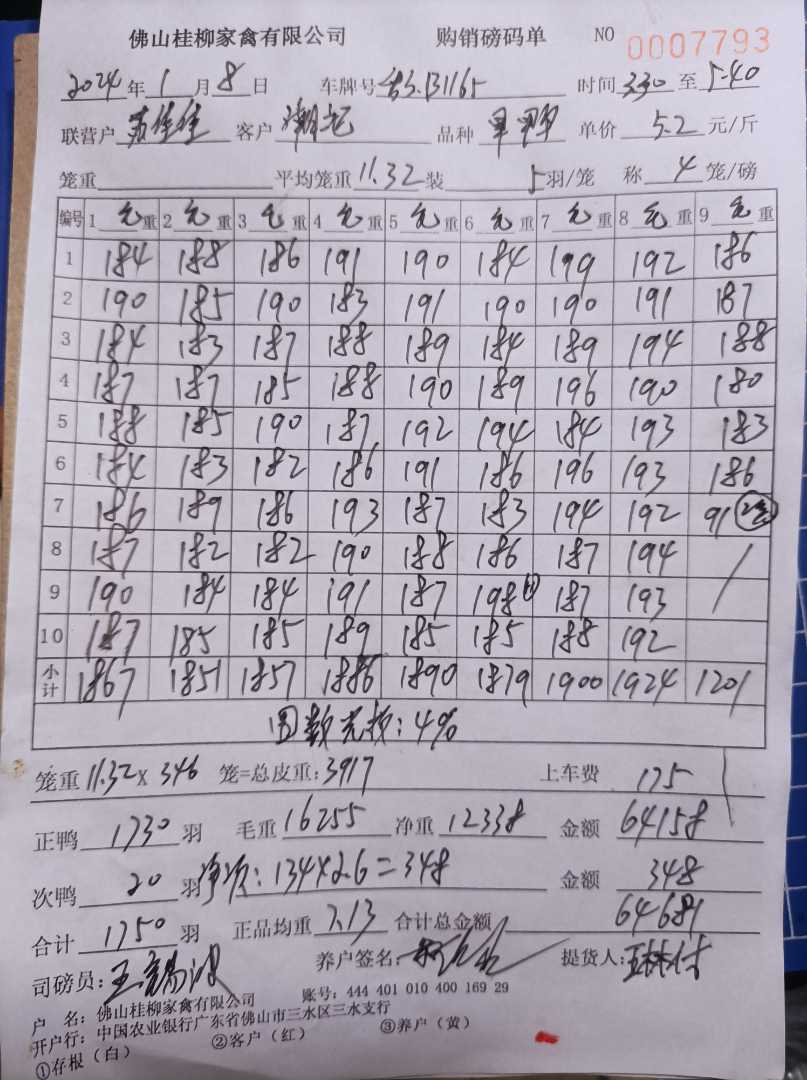 佛山桂柳家禽有限公司 购销磅码单 NO 0007793
2024年1月8日 车牌号 B1165 时间 330 至 5-40
联营户 客户 品种 单价 5.2 元/斤
笼重 平均笼重 11.32 装 5 羽/笼 称 4 笼/磅
编号 1 毛重 2 毛重 3 毛重 4 毛重 5 毛重 6 毛重 7 毛重 8 毛重 9 毛重
1 184 188 186 191 190 184 199 192 186
2 190 185 190 183 191 190 190 191 187
3 184 183 187 188 189 184 189 194 188
4 187 187 185 188 190 189 196 190 180
5 188 185 190 187 192 194 184 193 183
6 184 183 182 186 191 186 196 193 186
7 186 189 186 193 187 183 194 192 91 2笼
8 187 182 182 190 188 186 187 194
9 190 184 184 191 187 198 187 193
10 187 185 185 189 185 185 188 192
小计 1867 1851 1857 1886 1890 1879 1900 1924 1201
4%
笼重 11.32 x 346 笼=总皮重:3917 上车费 175
正鸭 1730 羽 毛重 16255 净重 12338 金额 64158
次鸭 20 羽 净次:134x2.6=348 金额 348
合计 1750 羽 正品均重 7.13 合计总金额 64681
司磅员: 养户签名: 提货人:
户 名:佛山桂柳家禽有限公司 账号:444 401 010 400 169 29
开户行:中国农业银行广东省佛山市三水区三水支行
①存根(白) ②客户(红) ③养户(黄)